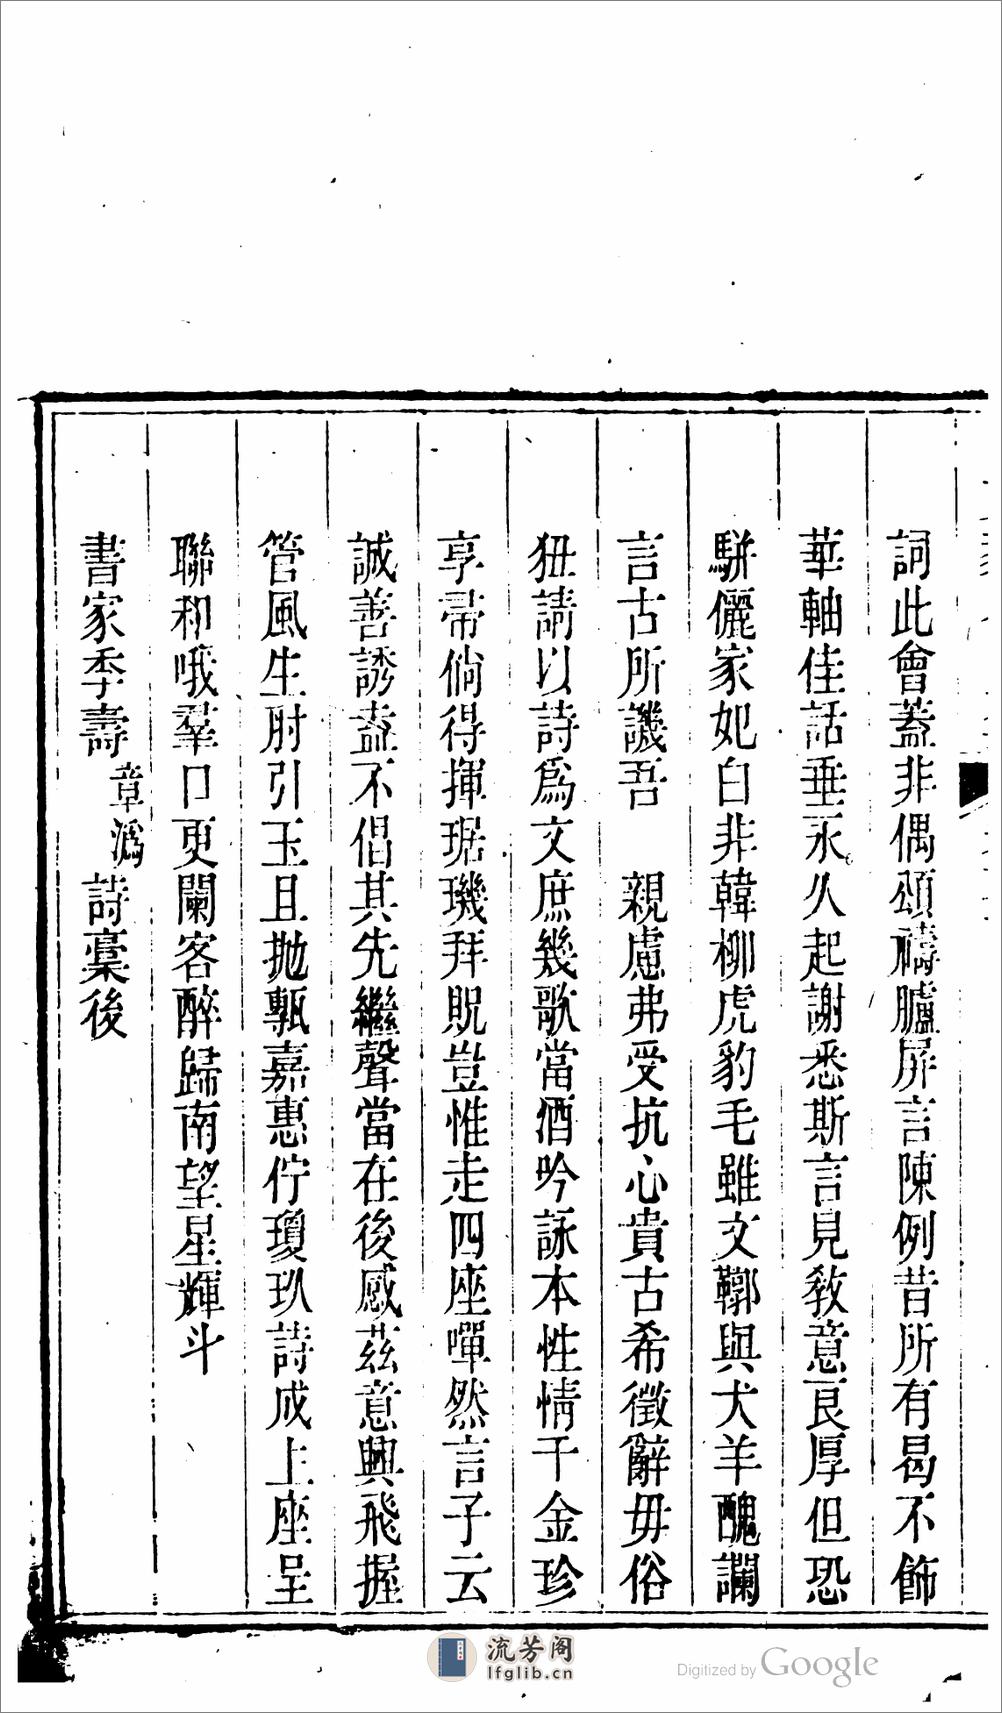 詞此會蓋非偶頌禱臚屏言陳例昔所有曷不飾
華軸佳話垂永久起謝悉斯言見教意良厚但恐
駢儷家妃白非韓柳虎豹毛雖文鞹與犬羊醜讕
言古所譏吾　親慮弗受抗心貴古希徵辭毋俗
狃請以詩為文庶幾歌當酒吟詠本性情千金珍
享帚倘得揮琚璣拜貺豈惟走四座嘽然言子云
誠善誘盍不倡其先繼聲當在後感茲意興飛握
管風生肘引玉且拋甎嘉惠佇瓊玖詩成上座呈
聯和哦羣口更闌客醉歸南望星輝斗
書家季壽章溈詩稾後
流芳阁
lfglib.cn
Digitized by Google